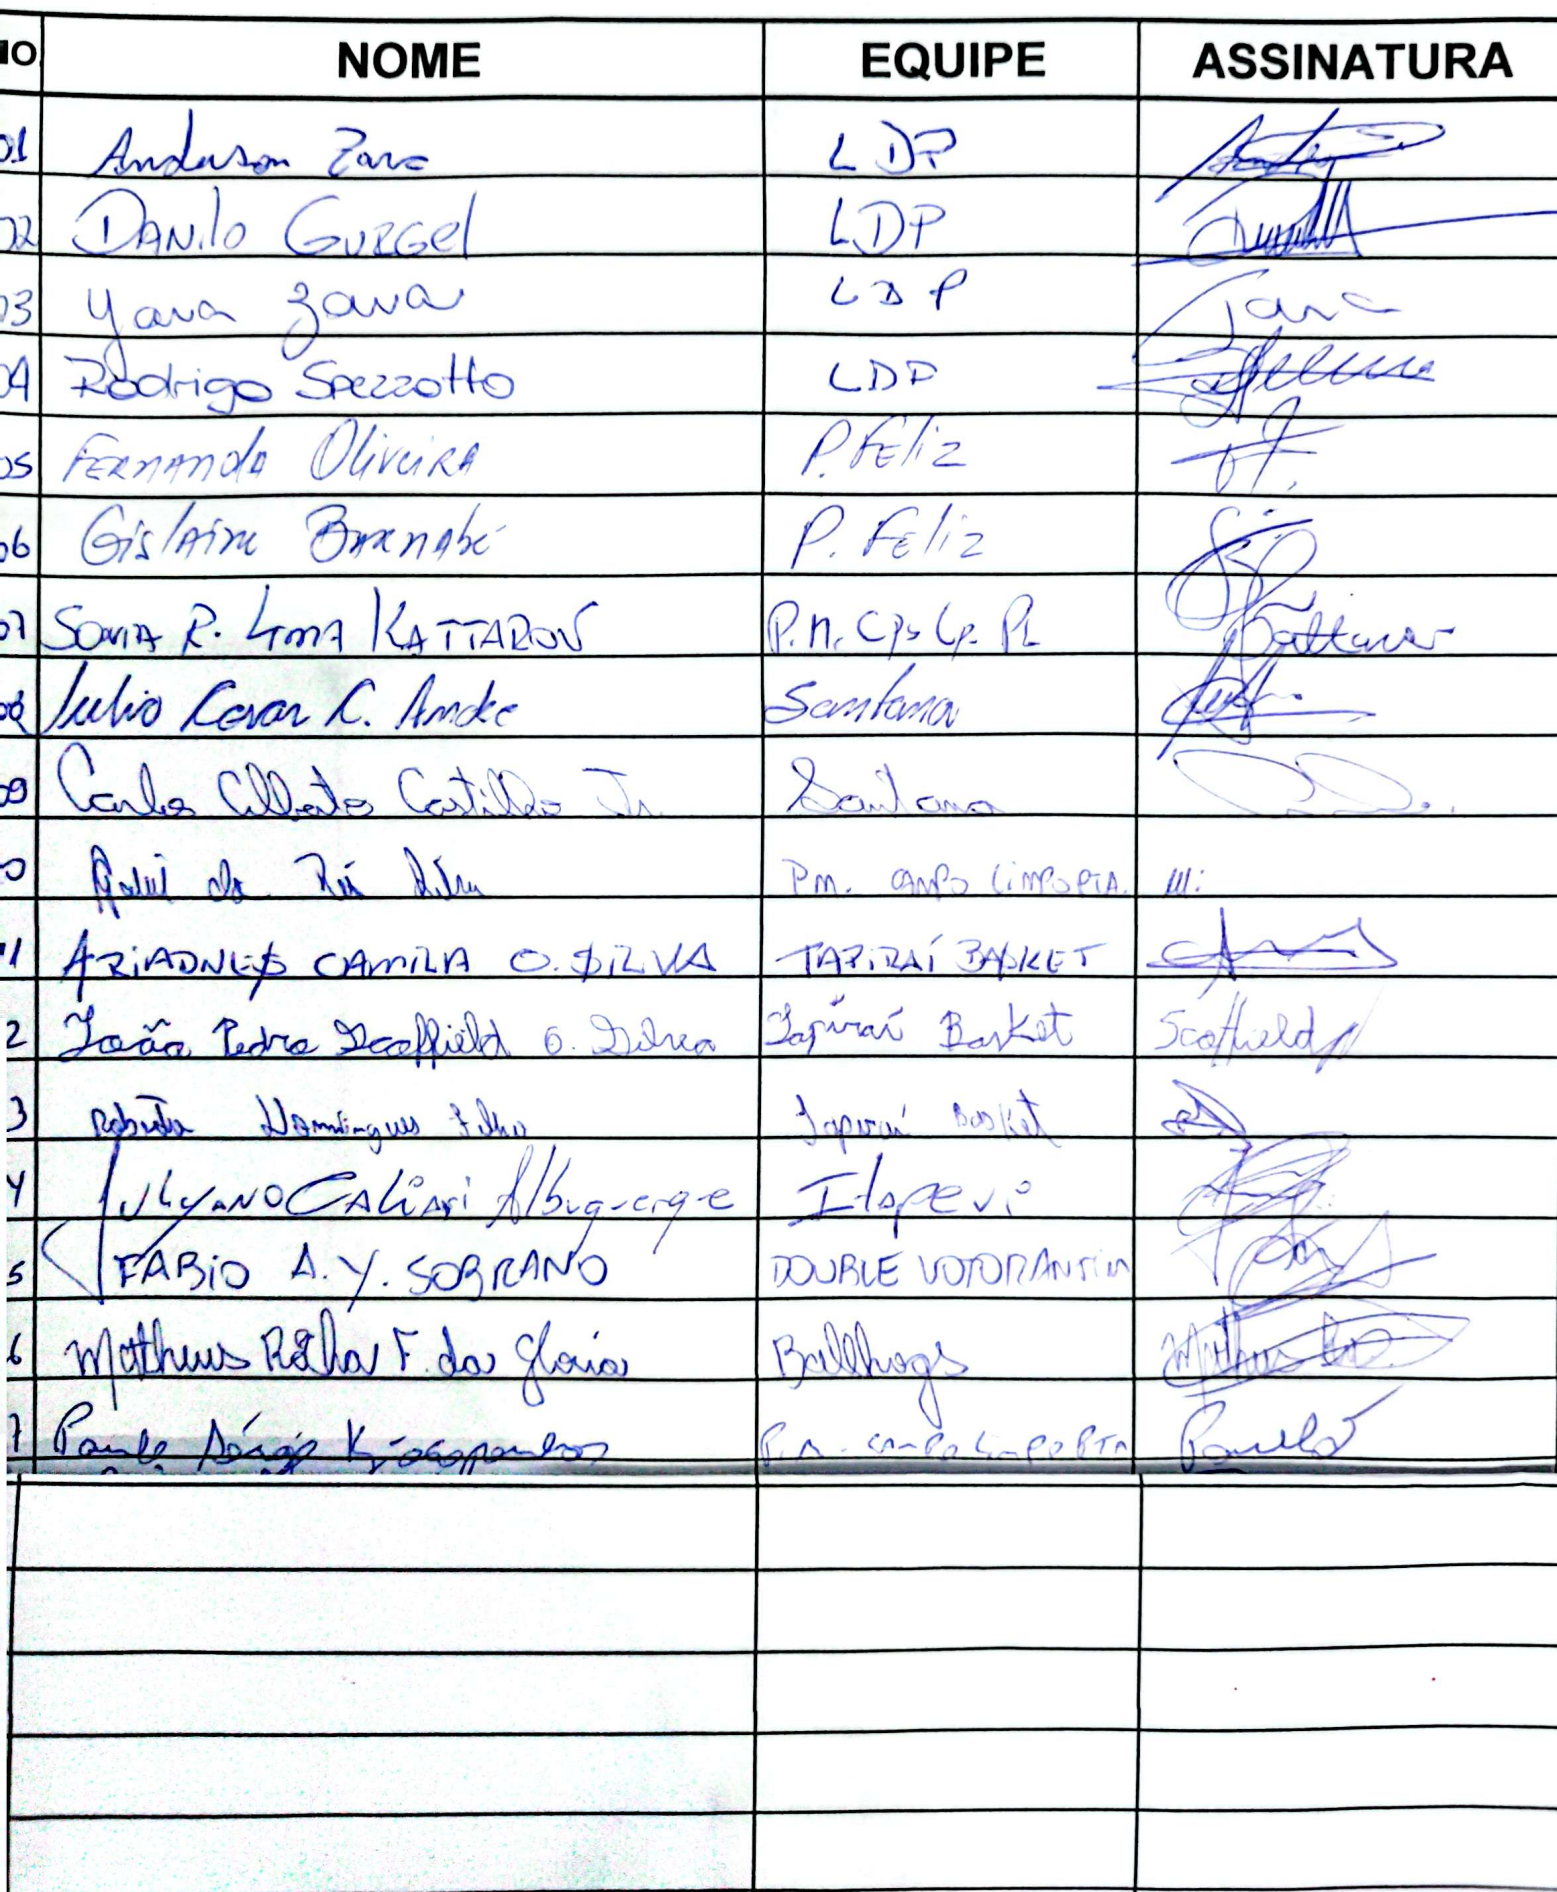 NOME EQUIPE ASSINATURA
01 Anderson Zara LDP
02 DANilo GURGEl LDP
03 Yara Zara LDP Yara
04 Rodrigo Spezzotto LDP
05 FERNANDO OliveiRA P. FEliz
06 Gislaine BARnabé P. FEliz
07 SONIA R. LIMA KATTAROV P.M.
08 Julio Cesar Santana
09 Carlos Alberto Castilho Jr. Santana
da PM. CAMPO LIMPO PTA.
ARIADNES CAMILA O. SILVA TAPIRAÍ BASKET
2 João Pedro Scoffield O. Silva Tapiraí Basket Scoffield
3 Roberto Domingues Filho Tapiraí Basket
4 JULYANO CALiARi Albuquerque Itapevi
5 FABIO A. Y. SOBRANO DOUBLE VOTORANTIM
6 Matheus Rocha F. da Glória Ballhogs Matheus
7 Paulo Sérgio P.M. CAMPO LIMPO PTA